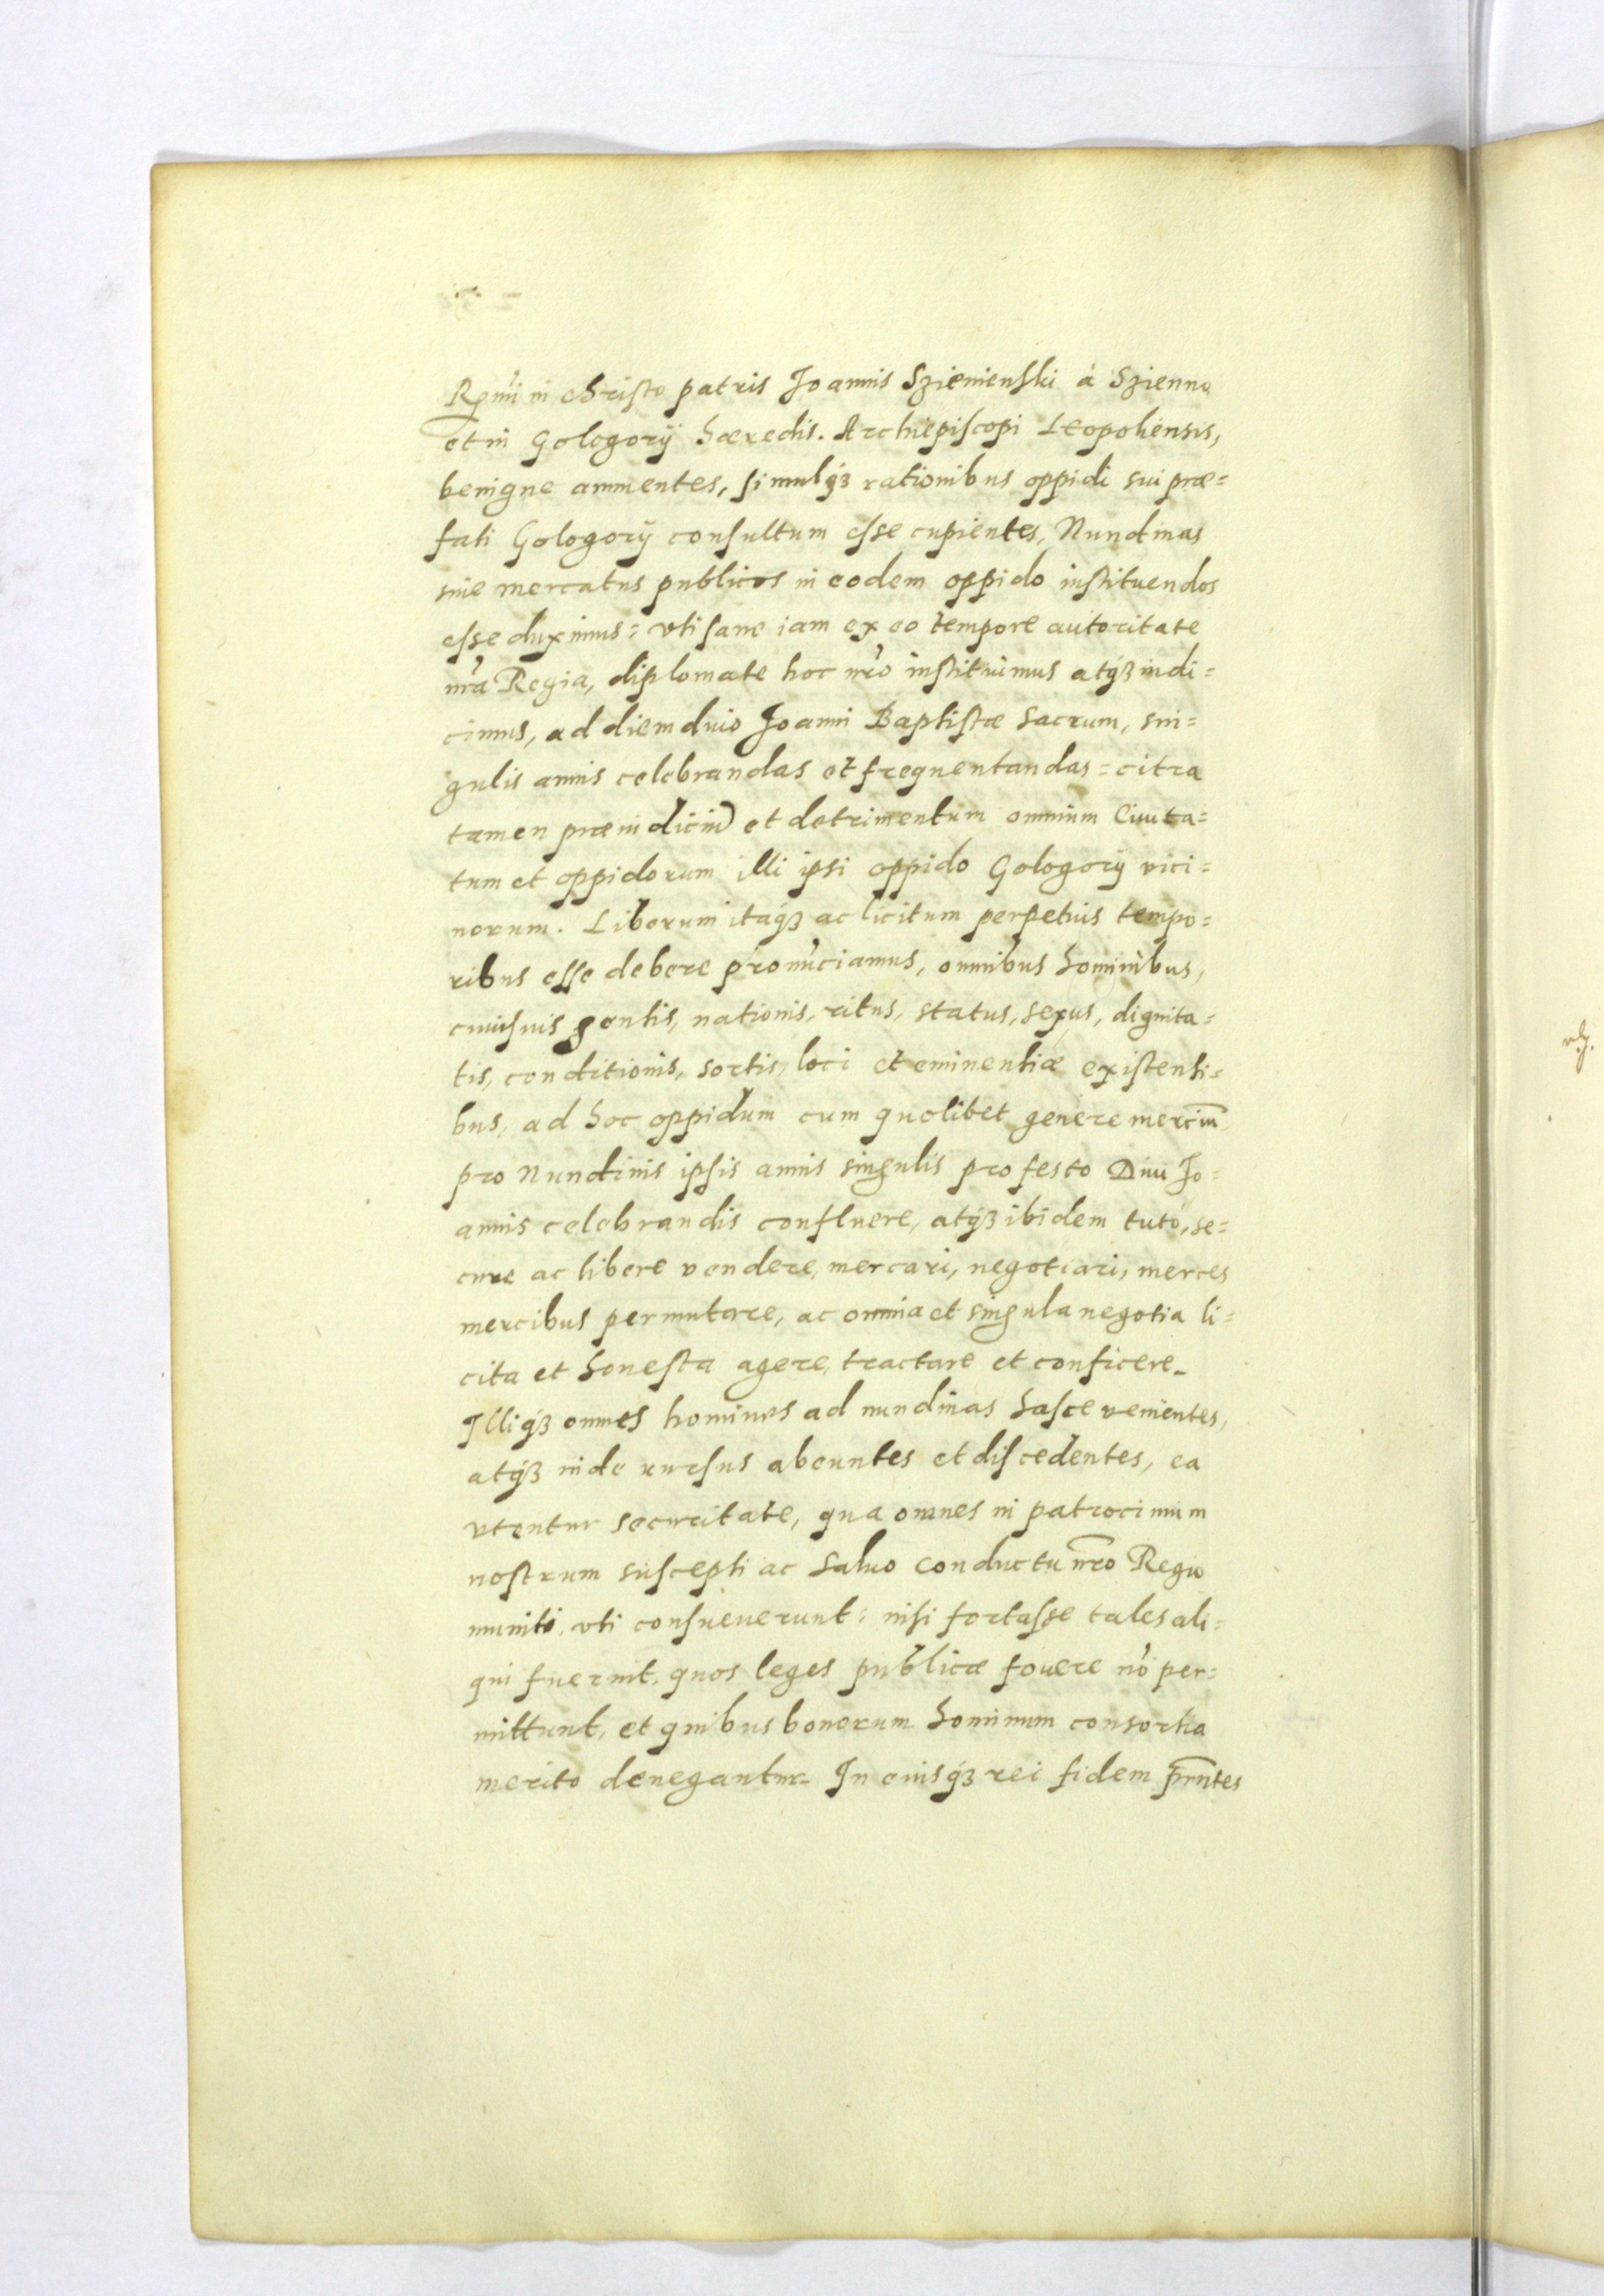 Rmi in christo patris Joannis Szienienski à Szienno
et in Gologorÿ haeredis. Archiepiscopi Leopoliensis,
benigne annuentes, simulqз rationibus oppidi sui prae=
fati Gologorÿ consultum esse cupientes, Nundinas
siue mercatus publicos in eodem oppido instituendos
esse duximus: vti sane iam ex eo tempore autoritate
nra Regia, diplomate hoc nro instituimus atqз indi=
cimus, ad diem diuo Joanni Baptistae Sacrum, sin=
gulis annis celebrandas et frequentandas: citra
tamen praeiudiciu et detrimentum omnium Ciuita=
tum et oppidorum illi ipsi oppido Gologorÿ vici=
norum. Liberum itaqз ac licitum perpetuis tempo=
ribus esse debere pronuciamus, omnibus hominibus,
cuiusuis gentis, nationis, ritus, status, sexus, dignita=
tis, conditionis, sortis, loci et eminentiae existenti=
bus, ad hoc oppidum cum quolibet genere merciu
pro Nundinis ipsis annis singulis pro festo Diui Jo=
annis celebrandis confluere, atqз ibidem tuto, se=
cure ac libere vendere, mercari, negotiari, merces
mercibus permutare, ac omnia et singula negotia li=
cita et honesta agere, tractare et conficere_
Illiqз omnes homines ad nundinas hasce venientes,
atqз inde rursus abeuntes et discedentes, ea
vtentur securitate, qua omnes in patrocinium
nostrum suscepti ac Saluo conductu nro Regio
muniti, vti consueuerunt: nisi fortasse tales ali=
qui fuerint, quos leges publicae fouere no per=
mittunt, et quibus bonorum hominum consortia
merito denegantur_ In cuiusqз rei fidem prntes